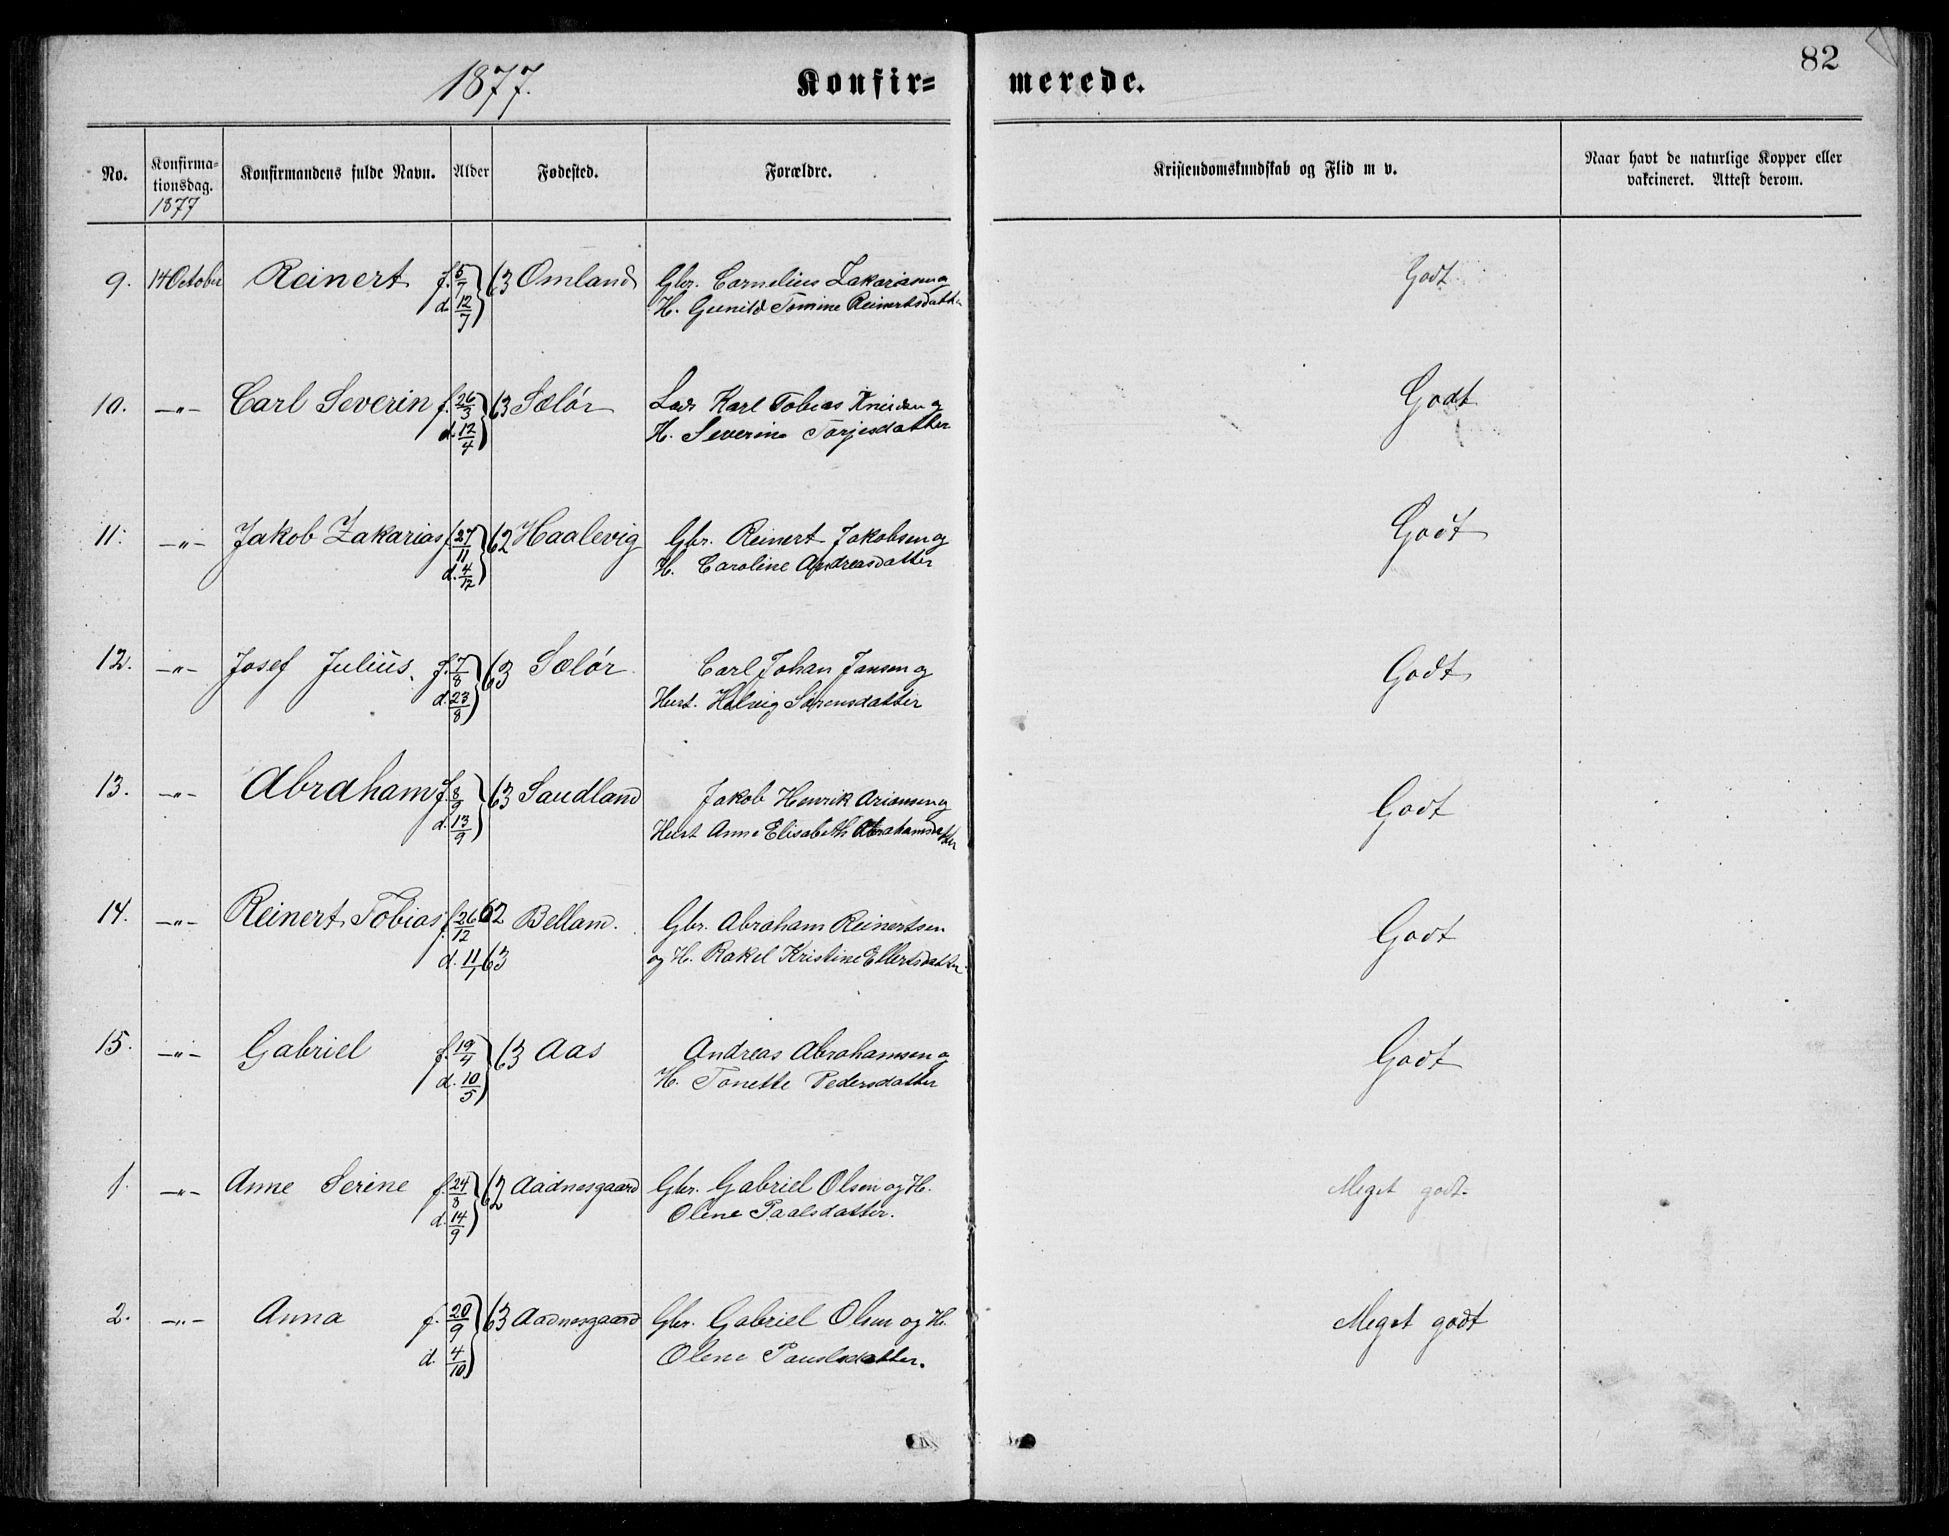 82
1877.
Konfir=merede.
No. Konfirma-tionsdag. 1877 Konfirmandens fulde Navn. Alder Fødested. Forældre. Kristendomskundskab og Flid m v. Naar havt de naturlige Kopper eller vakcineret. Attest derom.
9. 14 October Reinert f. 5/7 63 Omland Gbr. Cornelius Zakariasen og Godt
d. 12/7 H. Gunild Tomine Reinertsdatter
10. —"— Carl Severin f. 26/3 63 Selör Karl Tobias og Godt
d. 12/4 H. Severine Torjesdatter
11. —"— Jakob Zakarias f. 27/11 62 Haalevig Gbr. Reinert Jakobsen og Godt
d. 4/12 H. Caroline Andreasdatter
12. —"— Josef Julius. f. 7/8 63 Selör Carl Johan Jansen og Godt
d. 23/8 Hust. Helvig Sörensdatter
13. —"— Abraham f. 8/9 63 Sandland Jakob Henrik Ariansen og Godt
d. 13/9 Hust Anne Elisabeth Abrahamsdatter
14. —"— Reinert Tobias f. 26/12 62 Belland. Gbr. Abraham Reinertsen Godt
d. 11/1 63 og H. Rakel Kristine Ellertsdatter
15. —"— Gabriel f. 19/4 63 Aas Andreas Abrahamsen og Godt
d. 10/5 H. Tonette Pedersdatter
1. —"— Anne Serine f. 24/8 62 Aadnesgaard Gbr. Gabriel Olsen og H. Meget godt.
d. 14/9 Olene Paalsdatter.
2. —"— Anna f. 20/9 63 Aadnesgaard Gbr. Gabriel Olsen og H. Meget godt
d. 4/10 Olene Paulsdatter.